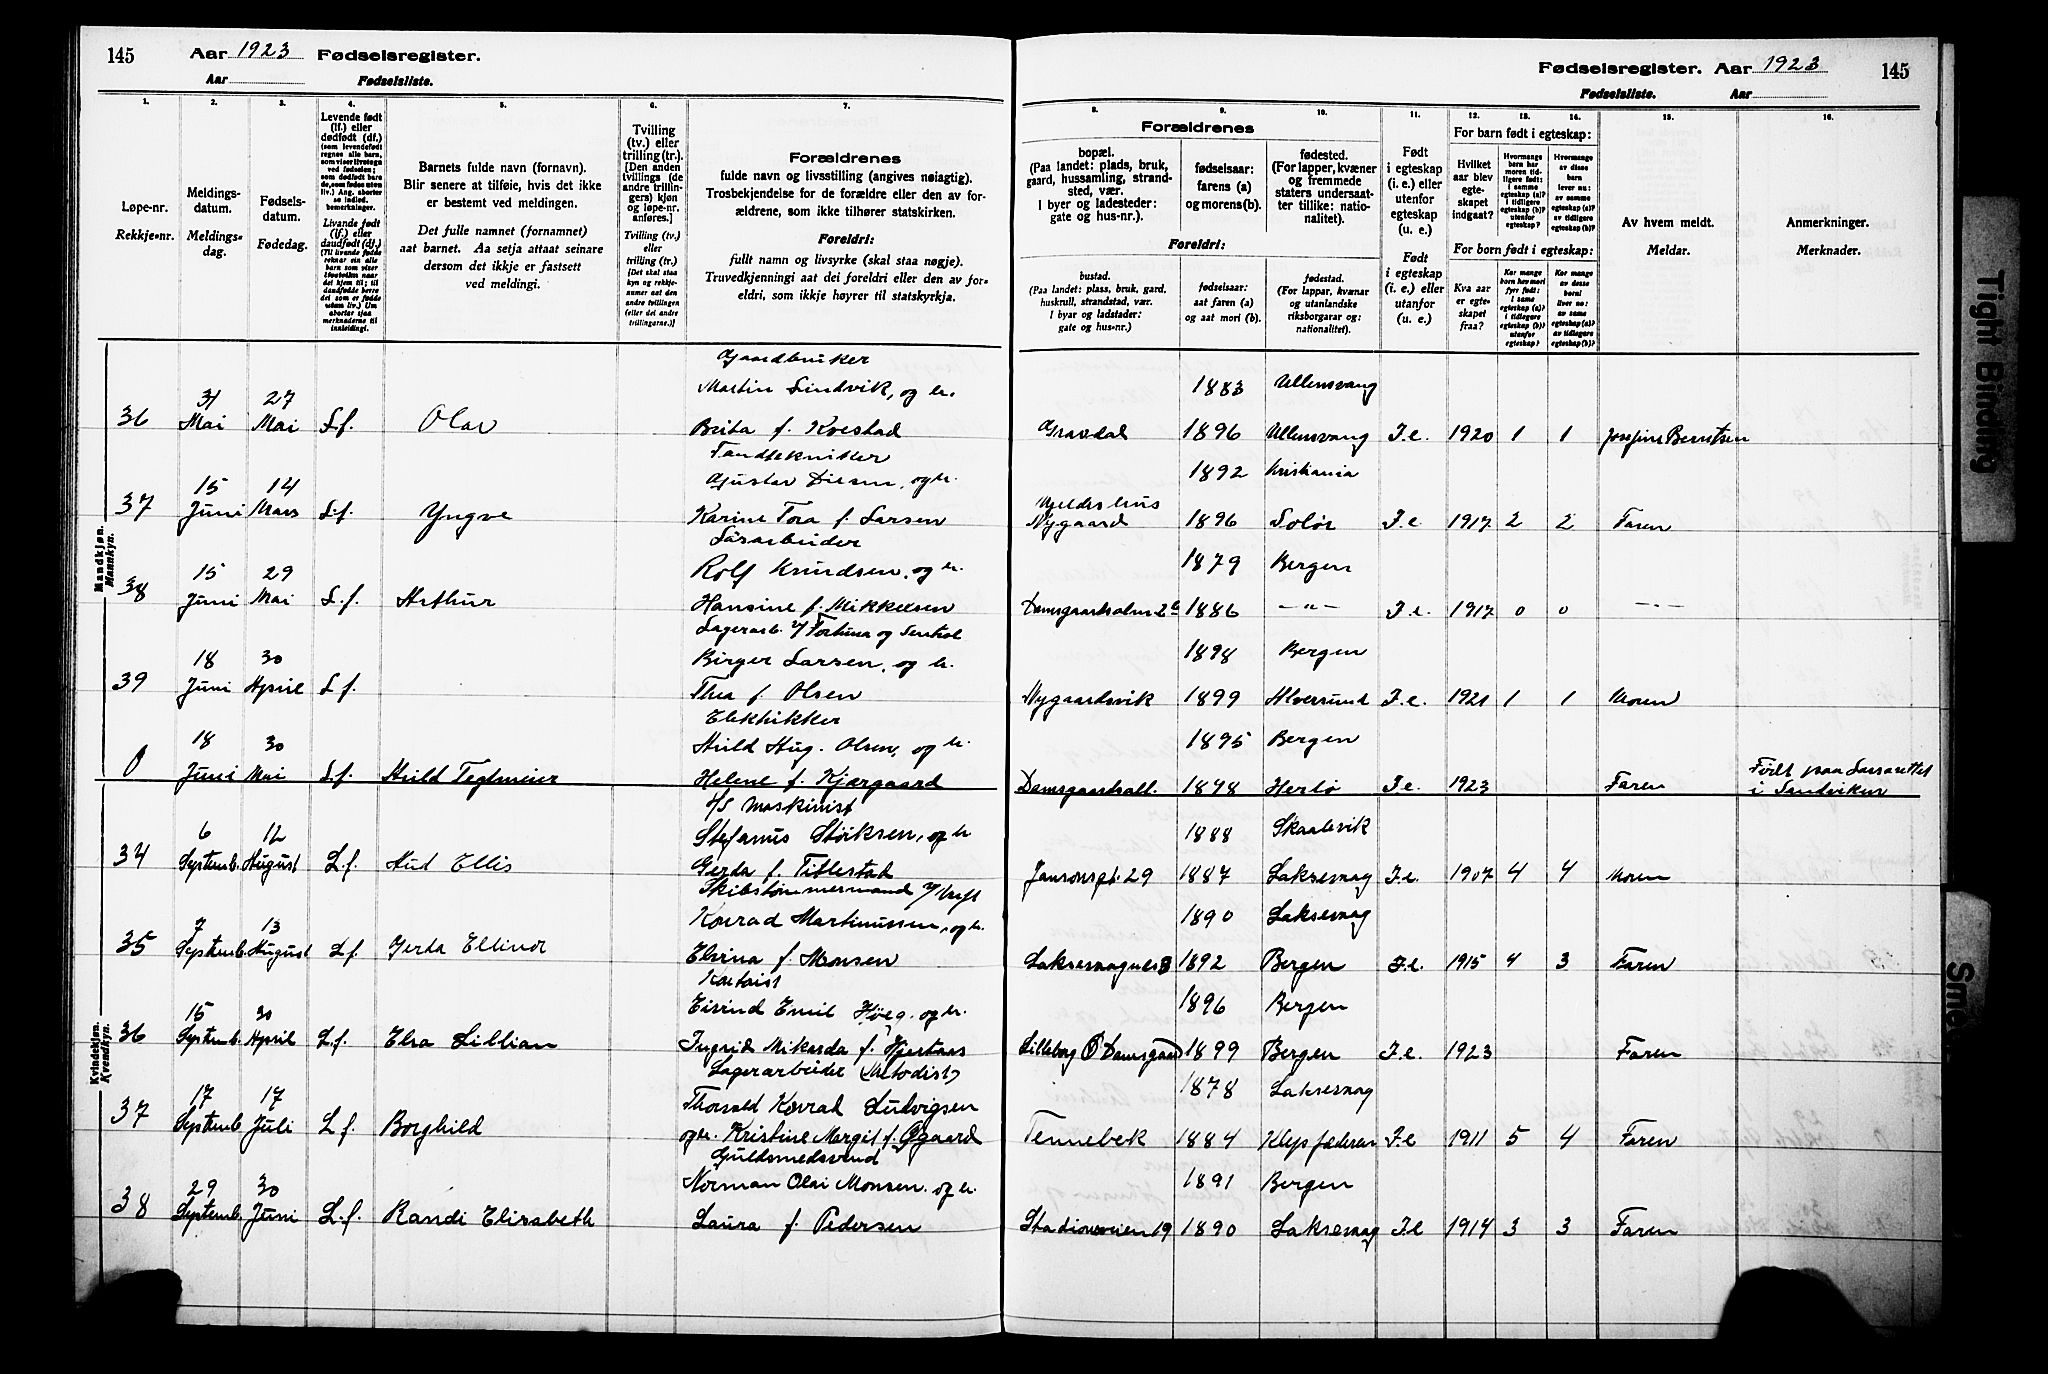 145 Aar 1923 Fødselsregister.
Aar Fødselsliste.
Fødselsregister. Aar 1923 145
Fødselsliste. Aar
1. 2. 3. 4. 5. 6. 7.
8. 9. 10. 11. 12. 13. 14. 15. 16.
Løpe-nr.
Rekkje-nr.
Meldings-
datum.
Meldings-
dag.
Fødsels-
datum.
Fødedag.
Levende født
(lf.) eller
dødfødt (df.)
Livande født
(lf.) eller
daudfødt (df.)
Barnets fulde navn (fornavn).
Blir senere at tilføie, hvis det ikke
er bestemt ved meldingen.
Det fulle namnet (fornamnet)
aat barnet. Aa setja attaat seinare
dersom det ikkje er fastsett
ved meldingi.
Tvilling
(tv.) eller
trilling (tr.).
[Den anden
tvillings (de
andre trillin-
gers) kjøn
og løpe-nr.
anføres.]
Tvilling (tv.)
eller
trilling (tr.)
Forældrenes
fulde navn og livsstilling (angives nøiagtig).
Trosbekjendelse for de forældre eller den av for-
ældrene, som ikke tilhører statskirken.
Foreldri:
fullt namn og livsyrke (skal staa nøgje).
Truvedkjenningi aat dei foreldri eller den av for-
eldri, som ikkje høyrer til statskyrkja.
Forældrenes
bopæl.
(Paa landet: plads, bruk,
gaard, hussamling, strand-
sted, vær.
I byer og ladesteder:
gate og hus-nr.).
fødselsaar:
farens (a)
og morens(b).
fødested.
(For lapper, kvæner
og fremmede
staters undersaat-
ter tillike: natio-
nalitet).
Foreldri:
bustad.
(Paa landet: plass, bruk, gard,
huskrull, strandstad, vær.
I byar og ladstader:
gate og hus-nr.)
fødselsaar:
aat faren (a)
og aat mori (b).
fødestad.
(For lappar, kvænar
og utanlandske
riksborgarar og:
nationalitet).
Født
i egteskap
(i. e.) eller
utenfor
egteskap
(u. e.)
Født
i egteskap
(i. e.) eller
utanfor
(u. e.)
For barn født i egteskap:
Hvilket
aar blev
egte-
skapet
indgaat?
For born født i egteskap:
Kva aar
er egte-
skapet
fraa?
Av hvem meldt.
Meldar.
Anmerkninger.
Merknader.
Mandkjøn.
Mannkyn.
Gaardbruker
Martin Lindvik, og h. 1883 Ullensvang
36 31 Mai 27 Mai L.f. Olav Brita f. Kvestad Gravdal 1896 Ullensvang I.e. 1920 1 1 Josefine Berntsen
Tandtekniker
Gustav og h. 1892 Kristiania
37 15 Juni 14 Mars L.f. Yngve Karine Tora f. Larsen Nygaard 1896 Solør I.e. 1917 2 2 Faren
Rolf Knudsen, og h. 1879 Bergen
38 15 Juni 29 Mai L.f. Arthur Hansine f. Mikkelsen 1886 —"— I.e. 1917 0 0 —"—
Lagerarb. v/ Fortuna og
Birger Larsen, og h. 1898 Bergen
39 18 Juni 30 April L.f. Thea f. Olsen Nygaardsvik 1899 Alversund I.e. 1921 1 1 Moren
Elektrikker
Arild Aug. Olsen, og h. 1895 Bergen
0 18 Juni 30 Mai L.f. Arild Tegtmeier Helene f. Kjærgaard Damsgaardsall. 1898 Herlø I.e. 1923 Faren Født paa Lasarettet
i Sandviken
Kvindekjøn.
Kvendkyn.
Maskinist
Stefanus Størksen, og h 1888 Skaalevik
34 6 Septemb. 12 August L.f. Aud Ellis Gerda f. Titlestad Jansonsgt. 29 1887 Laksevaag I.e. 1907 4 4 Moren
Skibstømmermand
Konrad Martinussen, og h. 1890 Laksevaag
35 7 Septemb. 13 August L.f. Gerda Ellinor Elvina f. Monsen 1892 Bergen I.e. 1915 4 3 Faren
Eivind Emil Høeg. og h. 1896 Bergen
36 15 Septemb. 30 April L.f. Elsa Lillian Ingrid Mikarda f. Hjertaas Lilleborg Ø Damsgaard 1899 Bergen I.e. 1923 Faren
Lagerarbeider (Metodist)
Thorvald Konrad Ludvigsen 1878 Laksevaag
37 17 Septemb 17 Juli L.f. Borghild og h. Kristine Margit f. Øgaard Tennebek 1884 Klep Jæderen I.e 1911 5 4 Faren
Guldsmedsvend
Norman Olai Monsen. og h. 1891 Bergen
38 29 Septemb. 30 Juni L.f. Randi Elisabeth Laura f. Pedersen Stadionveien 19 1890 Laksevaag I.e 1914 3 3 Faren
Tight Binding